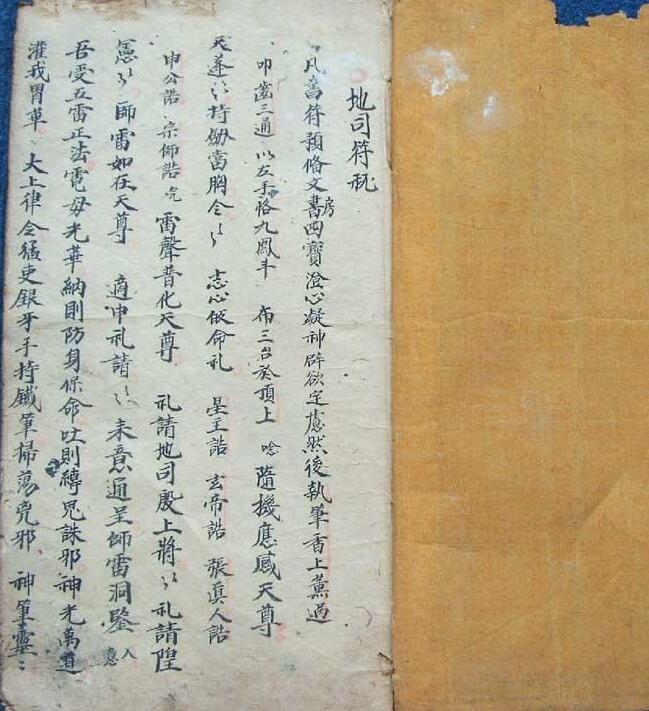 地司符秘
凡書符預俻文房四寶澄心凝神辟欲定慮然後執筆香上薰過
叩齒三通 以左手恪九鳳斗 布三台罡頂上 唸隨機應感天尊
天蓬 持劍當胸念 志心皈命礼 星主誥 玄帝誥 張真人誥
申公誥 宗師誥 雷聲普化天尊 礼請地司殷上將 礼請
憲 師雷如在天尊 適申礼請 来意通呈師雷洞鑒 入意
吾受五雷正法電母光華納則防身保命吐則縛鬼誅邪神光萬道
灌我胃革 太上律令猛吏銀牙手持鐵筆掃蕩兇邪 神筆靈